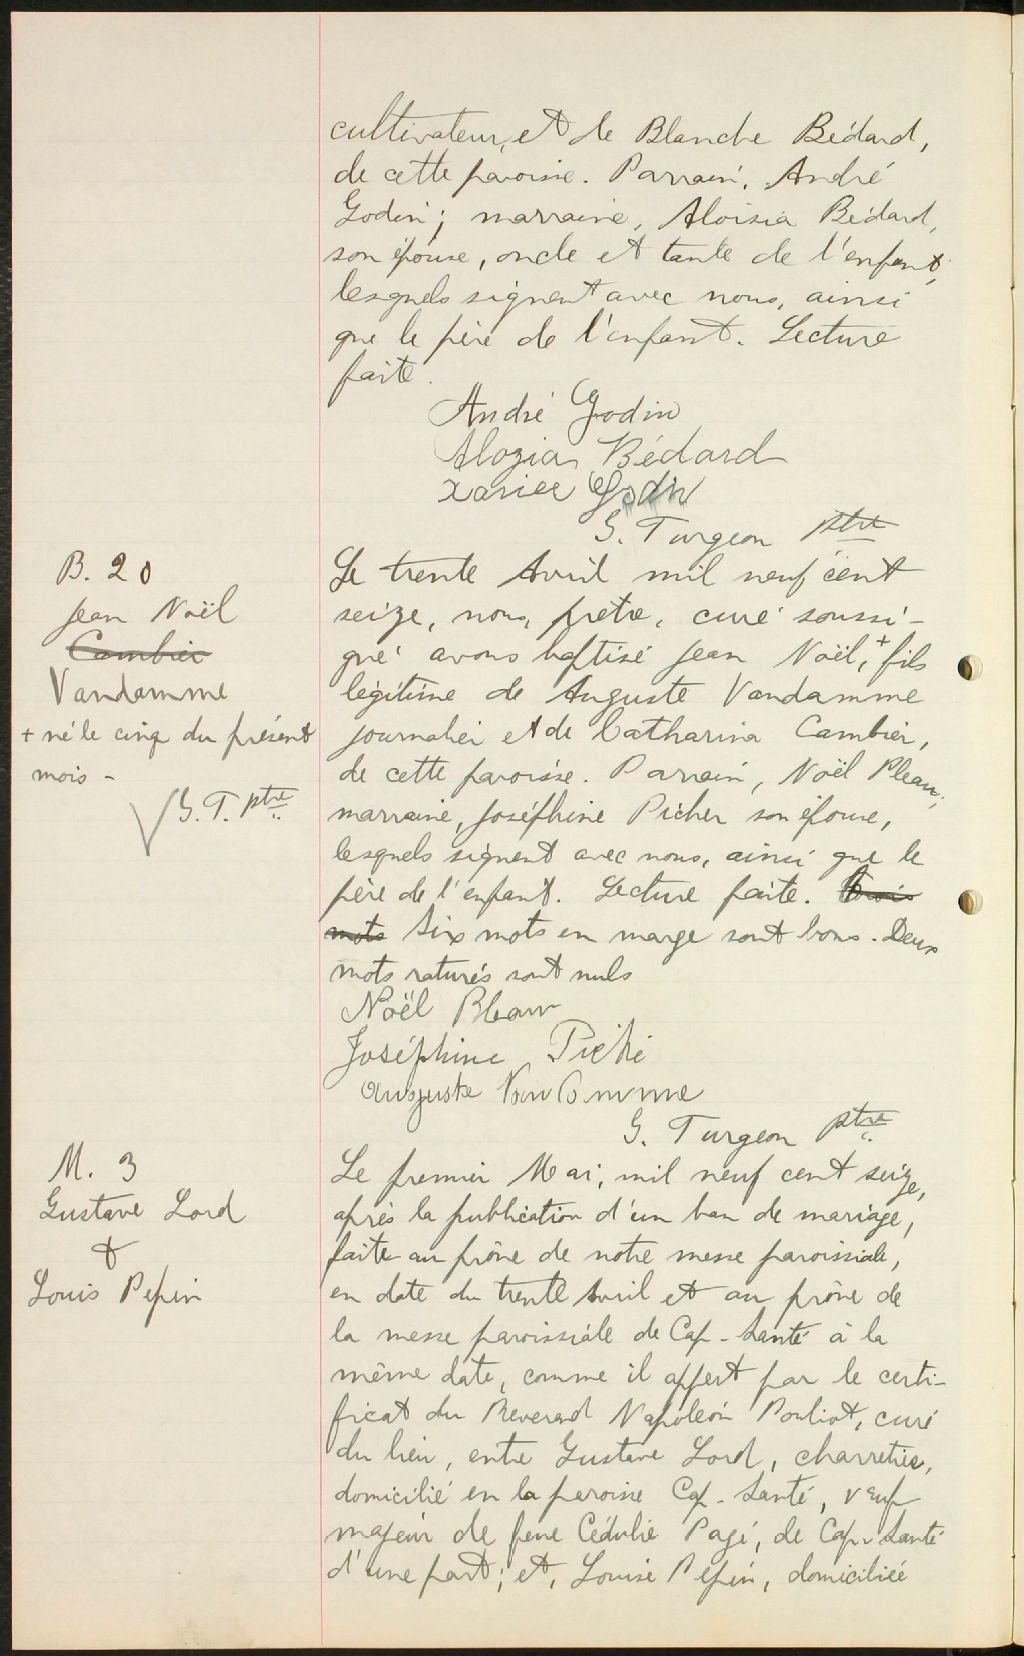 cultivateur, et de Blanche Bédard,
de cette paroisse. Parrain, André
Godin; marraine, Aloisia Bédard,
son épouse, oncle et tante de l'enfant,
lesquels signent avec nous, ainsi
que le père de l'enfant. Lecture
faite.
André Godin
Alozia Bédard
Xavier Godin
G. Turgeon ptre
B. 20
Jean Noël
Cambier
Vandamme
+ né le cinq du présent
mois -
G. T. ptre
Le trente Avril mil neuf cent
seize, nous, prêtre, curé soussi-
gné avons baptisé Jean Noël, + fils
légitime de Auguste Vandamme
journalier et de Catharina Cambier,
de cette paroisse. Parrain, Noël Pleau;
marraine, Joséphine Picher son épouse,
lesquels signent avec nous, ainsi que le
père de l'enfant. Lecture faite. Trois
mots Six mots en marge sont bons. Deux
mots raturés sont nuls
Noël Pleau
Joséphine Piché
Auguste Vandamme
G. Turgeon ptre
M. 3
Gustave Lord
&
Louis Pepin
Le premier Mai, mil neuf cent seize,
après la publication d'un ban de mariage,
faite au prône de notre messe paroissiale,
en date du trente Avril et au prône de
la messe paroissiale de Cap-Santé à la
même date, comme il appert par le certi-
ficat du Reverend Napoléon Pouliot, curé
du lieu, entre Gustave Lord, charretier,
domicilié en la paroisse Cap-Santé, veuf
majeur de feue Cédulie Pagé, de Cap-Santé
d'une part; et, Louise Pepin, domiciliée